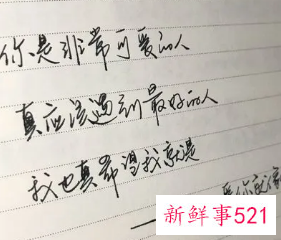 你是非常可爱的人
真应该遇到最好的人
我也真希望我就是
新鲜事521